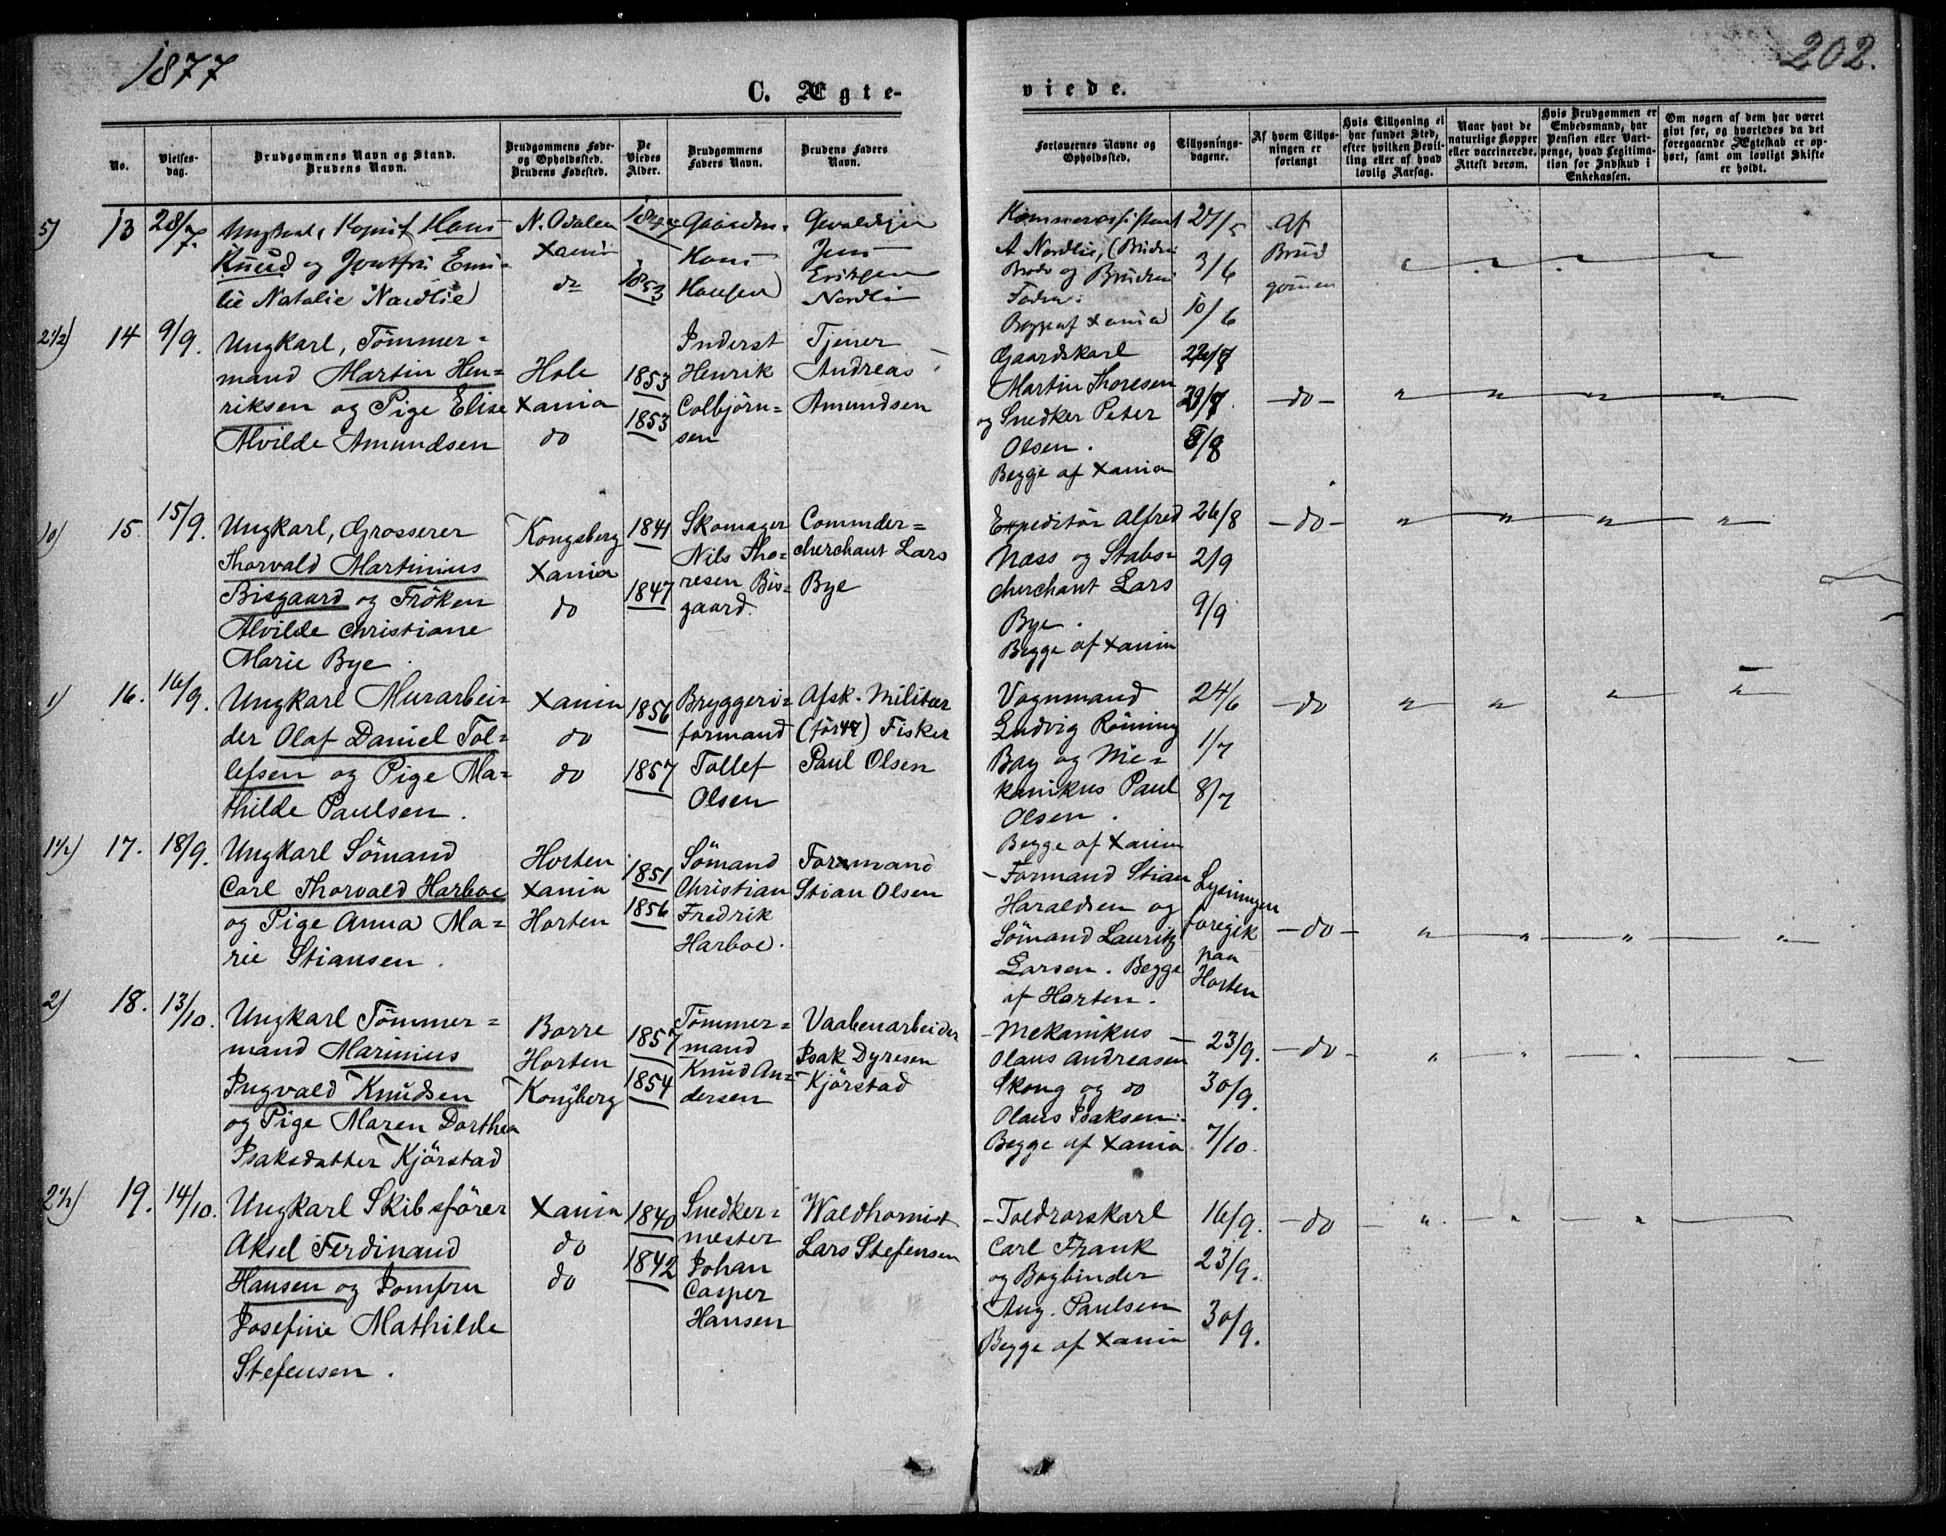 1877
202.
C. Ægte-
viede.
No.
Vielses-
dag.
Brudgommens Navn og Stand.
Brudens Navn.
Brudgommens Føde-
og Opholdssted.
Brudens Fødested.
De
Viedes
Alder.
Brudgommens
Faders Navn.
Brudens Faders
Navn.
Forlovernes Navne og
Opholdssted.
Tillysnings-
dagene.
Af hvem Tillys-
ningen er
forlangt
Hvis Tillysning ei
har fundet Sted,
efter hvilken Bevil-
ling eller af hvad
lovlig Aarsag.
Naar havt de
naturlige Kopper
eller vaccinerede.
Attest derom.
Hvis Brudgommen er
Embedsmand, har
Pension eller Vart-
penge, hvad Legitima-
tion for Indskud i
Enkekassen.
Om nogen af dem har været
givt før, og hvorledes da det
foregaaende Ægteskab er op-
hørt, samt om lovligt Skifte
er holdt.
5) 13 28/7.
Ungkarl, Kopist Hans
Knud og Jomfru Emi-
lie Natalie Nordlie
N. Odalen
Xania
do
1853
Hans
Hansen
Jens
Nordli
A Nordlie, (Brudens
Broder og Brudens
Fader.
Begge af Xania
27/5
3/6
10/6
Af
Brud
gommen
2 1/2) 14 9/9.
Ungkarl, Tömmer=
mand Martin Hen=
riksen og Pige Elise
Alvilde Amundsen
Hole
Xania
do
1853
1853
Inderst
Henrik
Colbjörn=
sen
Tjener
Andreas
Amundsen
Gaardskarl
Martin Thoresen
og Snedker Peter
Olsen.
Begge af Xania
29/7.
5/8
-do-
10) 15. 15/9.
Ungkarl, Grosserer
Thorvald Martinius
Bisgaard og Fröken
Alvilde Christiane
Marie Bye.
Kongsberg
Xania
do
1841
1847
Skomager
Nils Tho=
resen Bis=
gaard.
Commder=
cherchant Lars
Bye
Expeditör Alfred
Næss og Stabs=
cherchant Lars
Bye.
Begge af Xania
26/8
2/9
9/9
-do-
1) 16. 16/9.
Ungkarl Murarbei=
der Olaf Daniel Tol=
lefsen og Pige Ma=
thilde Paulsen.
Xania
do
do
1856
1857
Bryggeri=
formand
Tollef
Olsen
Afsk. Militær
Fisker
Paul Olsen
Vognmand
Ludvig Röning
Bay og Me=
kanikus Paul
Olsen.
Begge af Xania
24/6
1/7
8/7
-do
1 1/2) 17. 18/9.
Ungkarl Sömand
Carl Thorvald Harboe
og Pige Anna Ma=
rie Stiansen.
Horten
Xania
Horten
1851
1856
Sömand
Christian
Fredrik
Harboe.
Formand
Stian Olsen
- Formand Stian
Haraldsen og
Sömand Lauritz
Larsen. Begge
af Horten.
Lysningen
foregik
paa
Horten
-do-
2) 18. 13/10.
Ungkarl Tömmer=
mand Marinius
Ingvald Knudsen
og Pige Maren Dorthea
Isaksdatter Kjörstad
Borre
Horten
Kongsberg
1857
1854
Tömmer=
mand
Knud An=
dersen
Vaabenarbeider
Isak Dyresen
Kjörstad
- Mekanikus
Olaus Andreasen
Skong og do
Olaus Isaksen.
Begge af Xania
23/9.
30/9.
7/10.
-do-
2 1/2) 19. 14/10.
Ungkarl Skibsförer
Aksel Ferdinand
Hansen og Jomfru
Josefine Mathilde
Stefensen.
Xania
do
do
1840
1842
Snedker=
mester
Johan
Casper
Hansen
Waldhornist
Lars Stefensen
- Toldrorskarl
Carl Frank
og Bogbinder
Aug. Paulsen
Begge af Xania
16/9.
23/9.
30/9.
-do